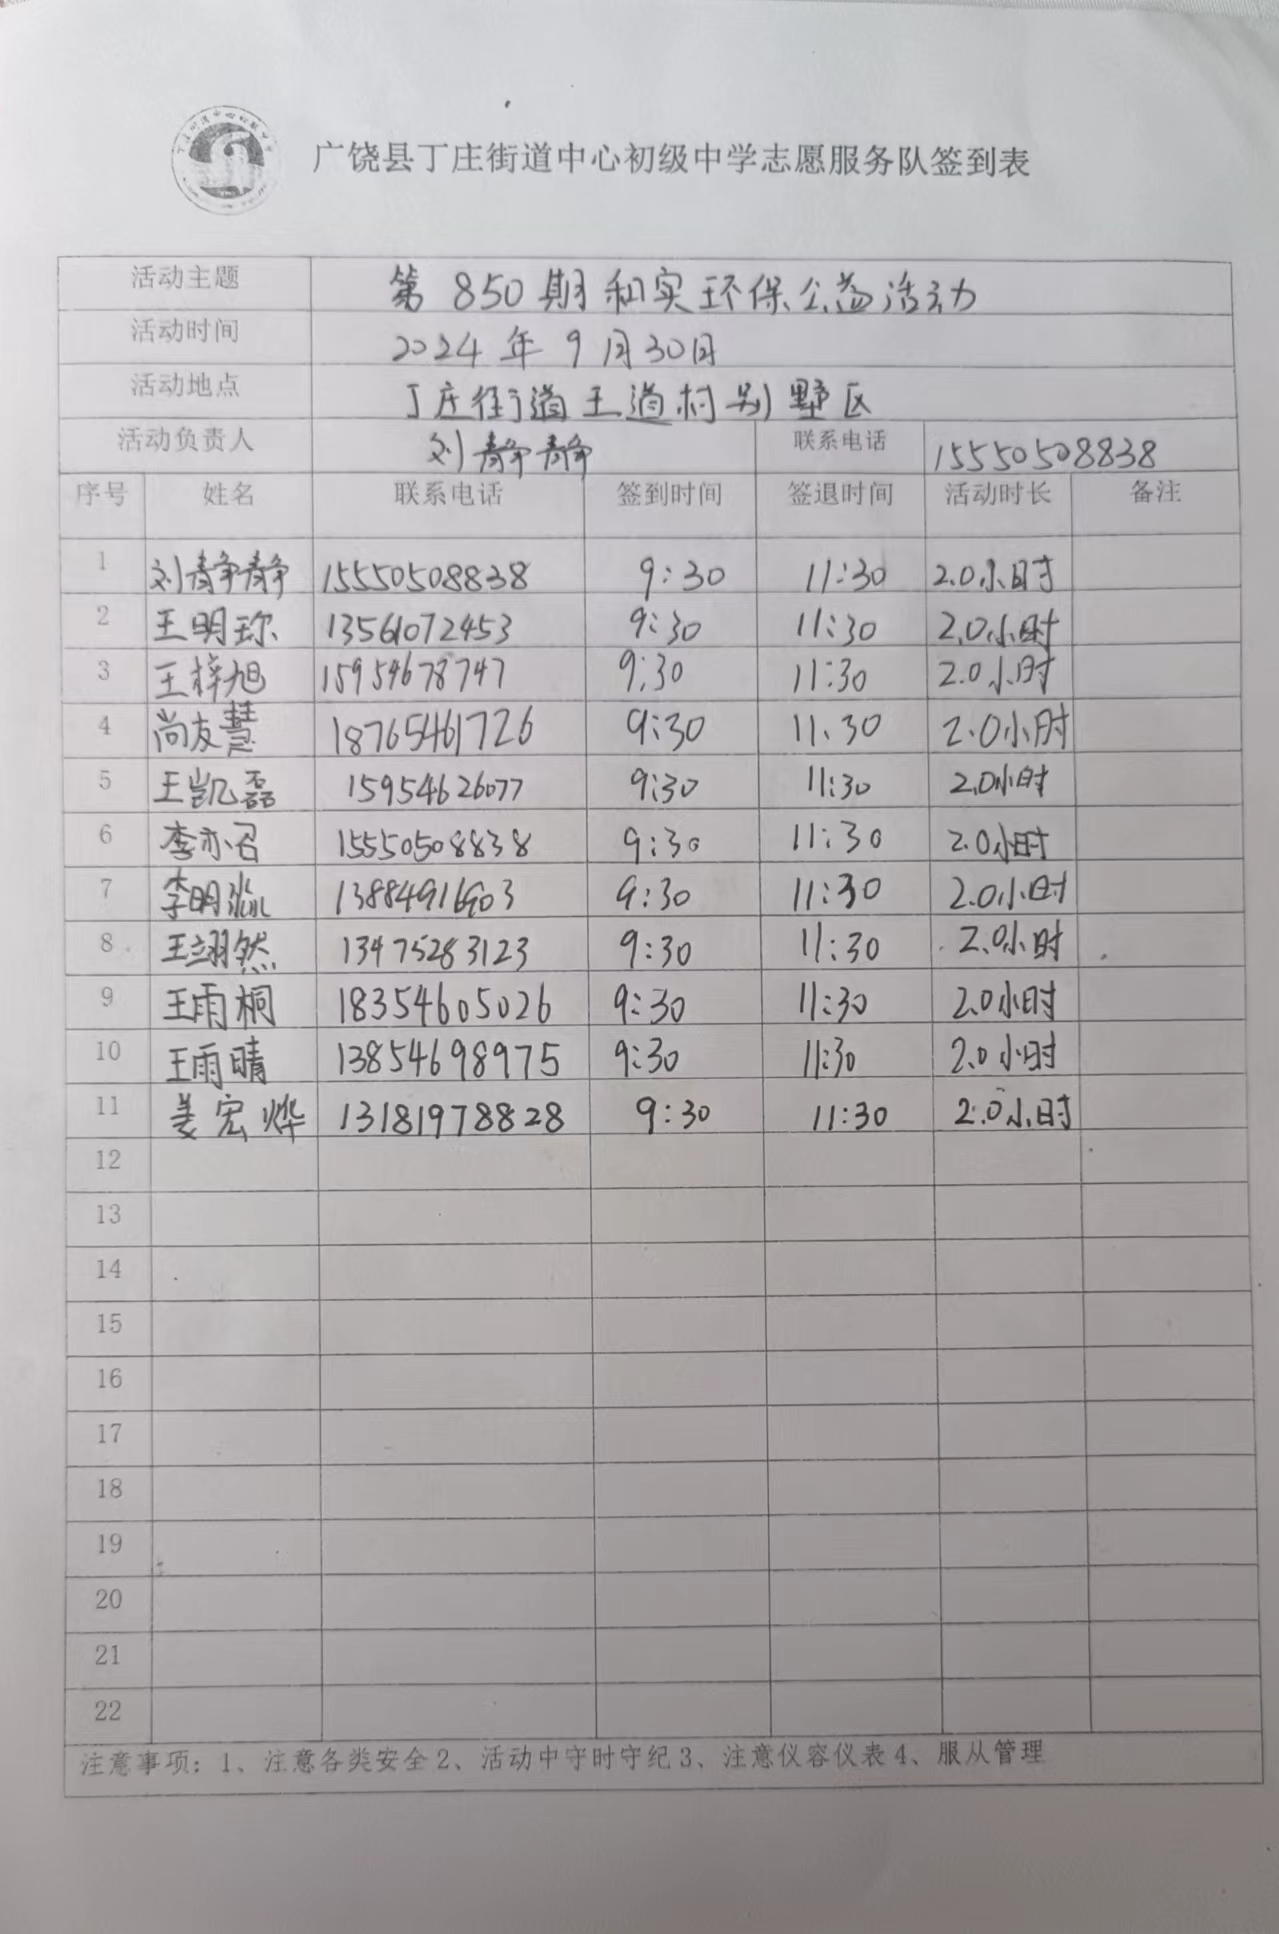 广饶县丁庄街道中心初级中学志愿服务队签到表
活动主题 第850期和实环保公益活动
活动时间 2024年9月30日
活动地点 丁庄街道王道村别墅区
活动负责人 刘静静 联系电话 15550508838
序号 姓名 联系电话 签到时间 签退时间 活动时长 备注
1 刘静静 15550508838 9:30 11:30 2.0小时
2 王明珎 13561072453 9:30 11:30 2.0小时
3 王梓旭 15954678747 9:30 11:30 2.0小时
4 尚友慧 18765461726 9:30 11:30 2.0小时
5 王凯磊 15954626077 9:30 11:30 2.0小时
6 李亦召 15550508838 9:30 11:30 2.0小时
7 李明淼 9:30 11:30 2.0小时
8 王翊然 13475283123 9:30 11:30 2.0小时
9 王雨桐 18354605026 9:30 11:30 2.0小时
10 王雨晴 13854698975 9:30 11:30 2.0小时
11 姜宏烨 13181978828 9:30 11:30 2.0小时
12
13
14
15
16
17
18
19
20
21
22
注意事项：1、注意各类安全2、活动中守时守纪3、注意仪容仪表4、服从管理